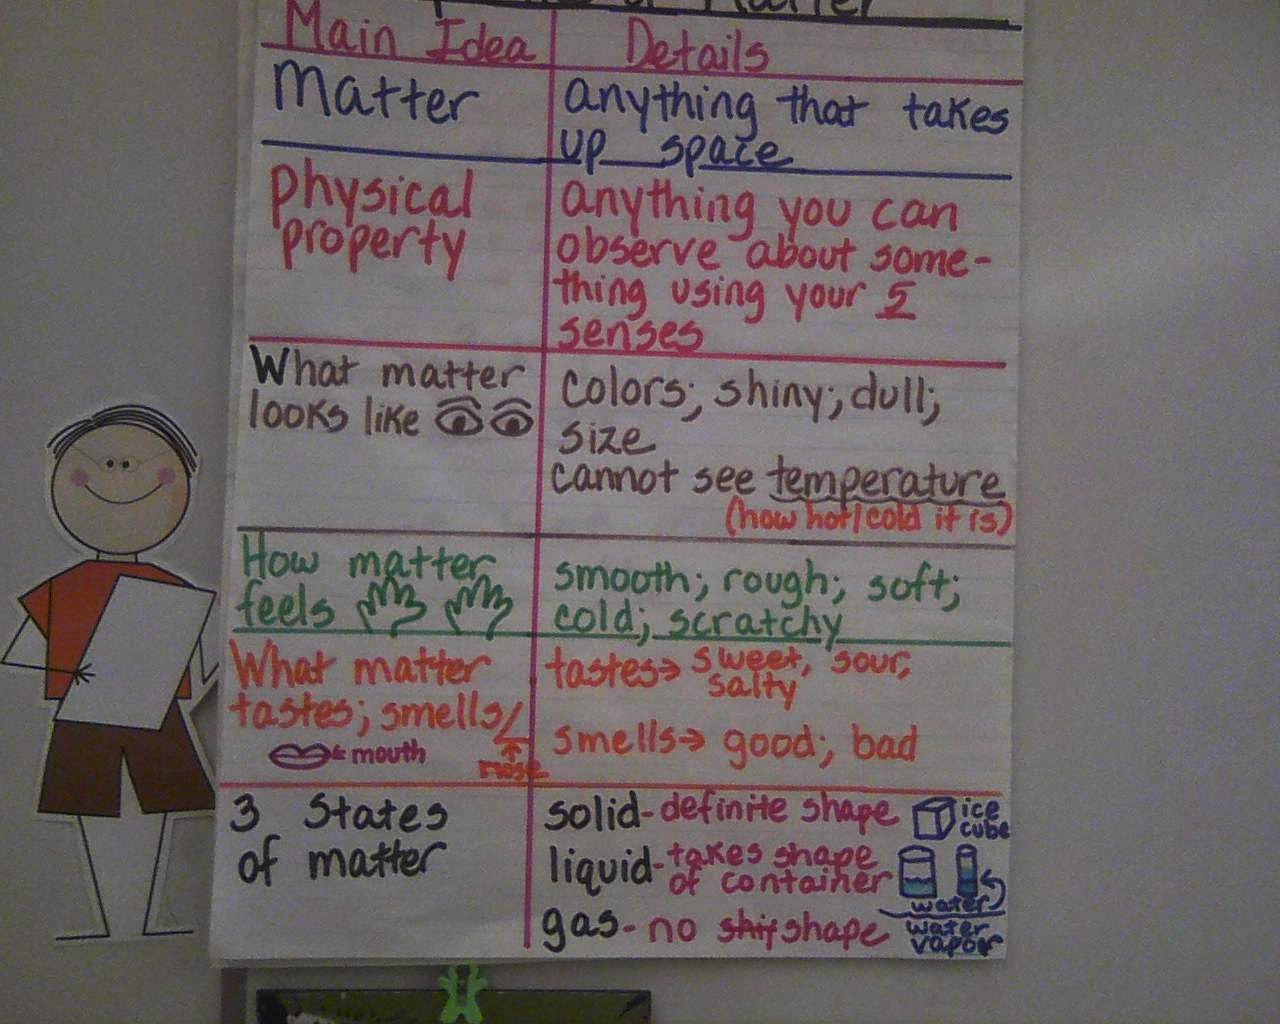 Matter
Main Idea Details
Matter
anything that takes
up space
physical
property
anything you can
observe about some-
thing using your 5
senses
What matter
looks like
colors; shiny; dull;
size
cannot see temperature
(how hot/cold it is)
How matter
feels
smooth; rough; soft;
cold; scratchy
What matter
tastes; smells/
mouth
nose
tastes→ sweet, sour,
salty
smells→ good; bad
3 States
of matter
solid-definite shape
ice
cube
liquid-takes shape
of container
water
gas- no shape
water
vapor